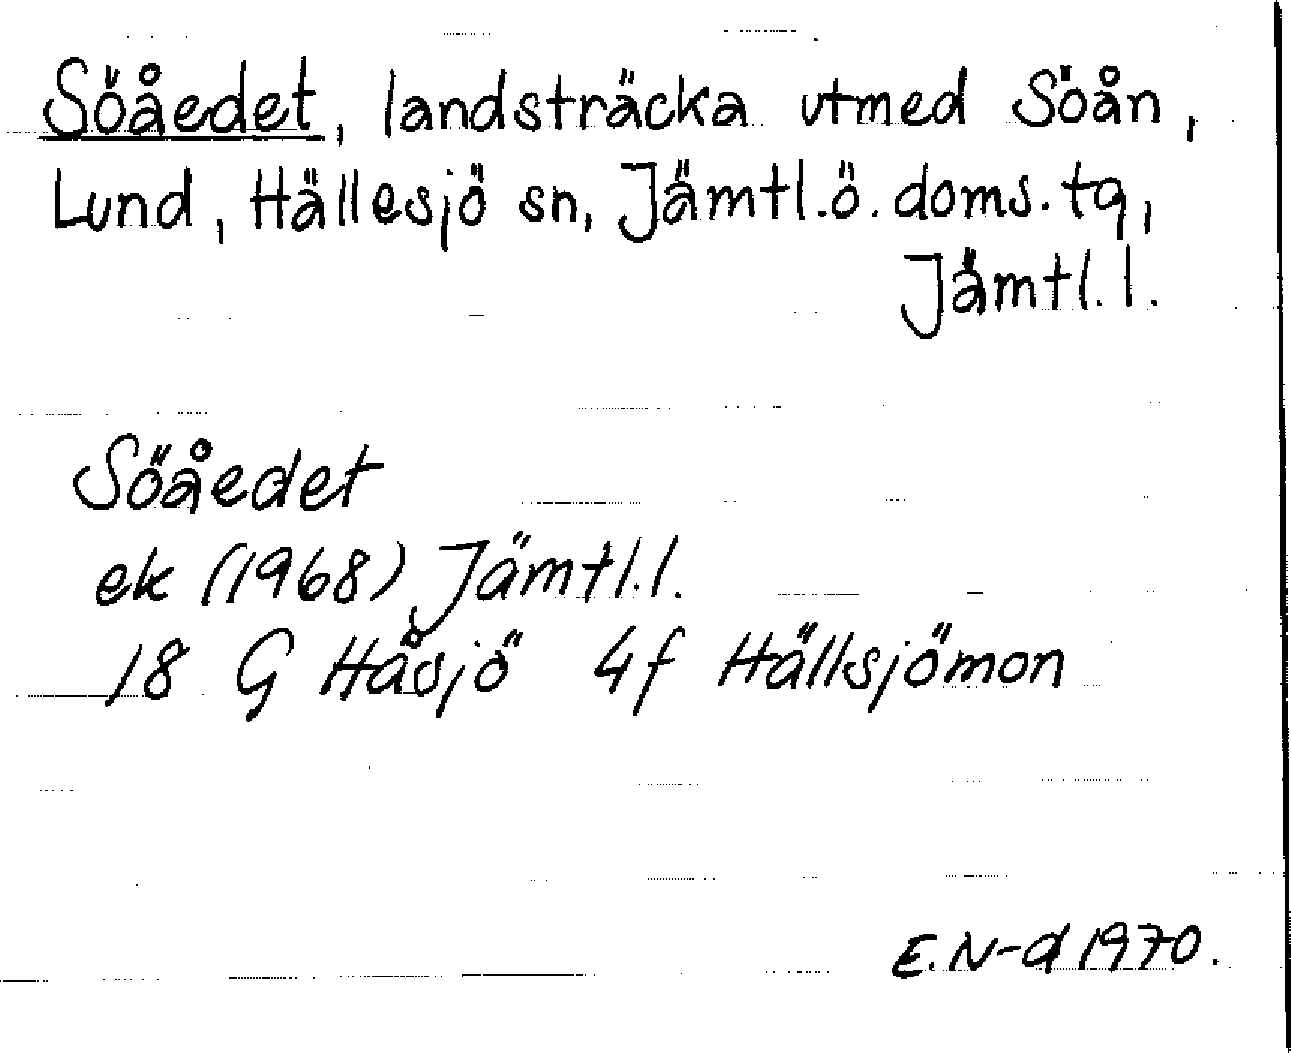 Söåedet, landsträcka utmed Söån,
Lund, Hällesjö sn, Jämtl.ö. doms.tq,
Jämtl.l.
Söåedet
ek (1968) Jämtl.l.
18 G Håsjö 4f Hällsjömon
E.N-d 1970.